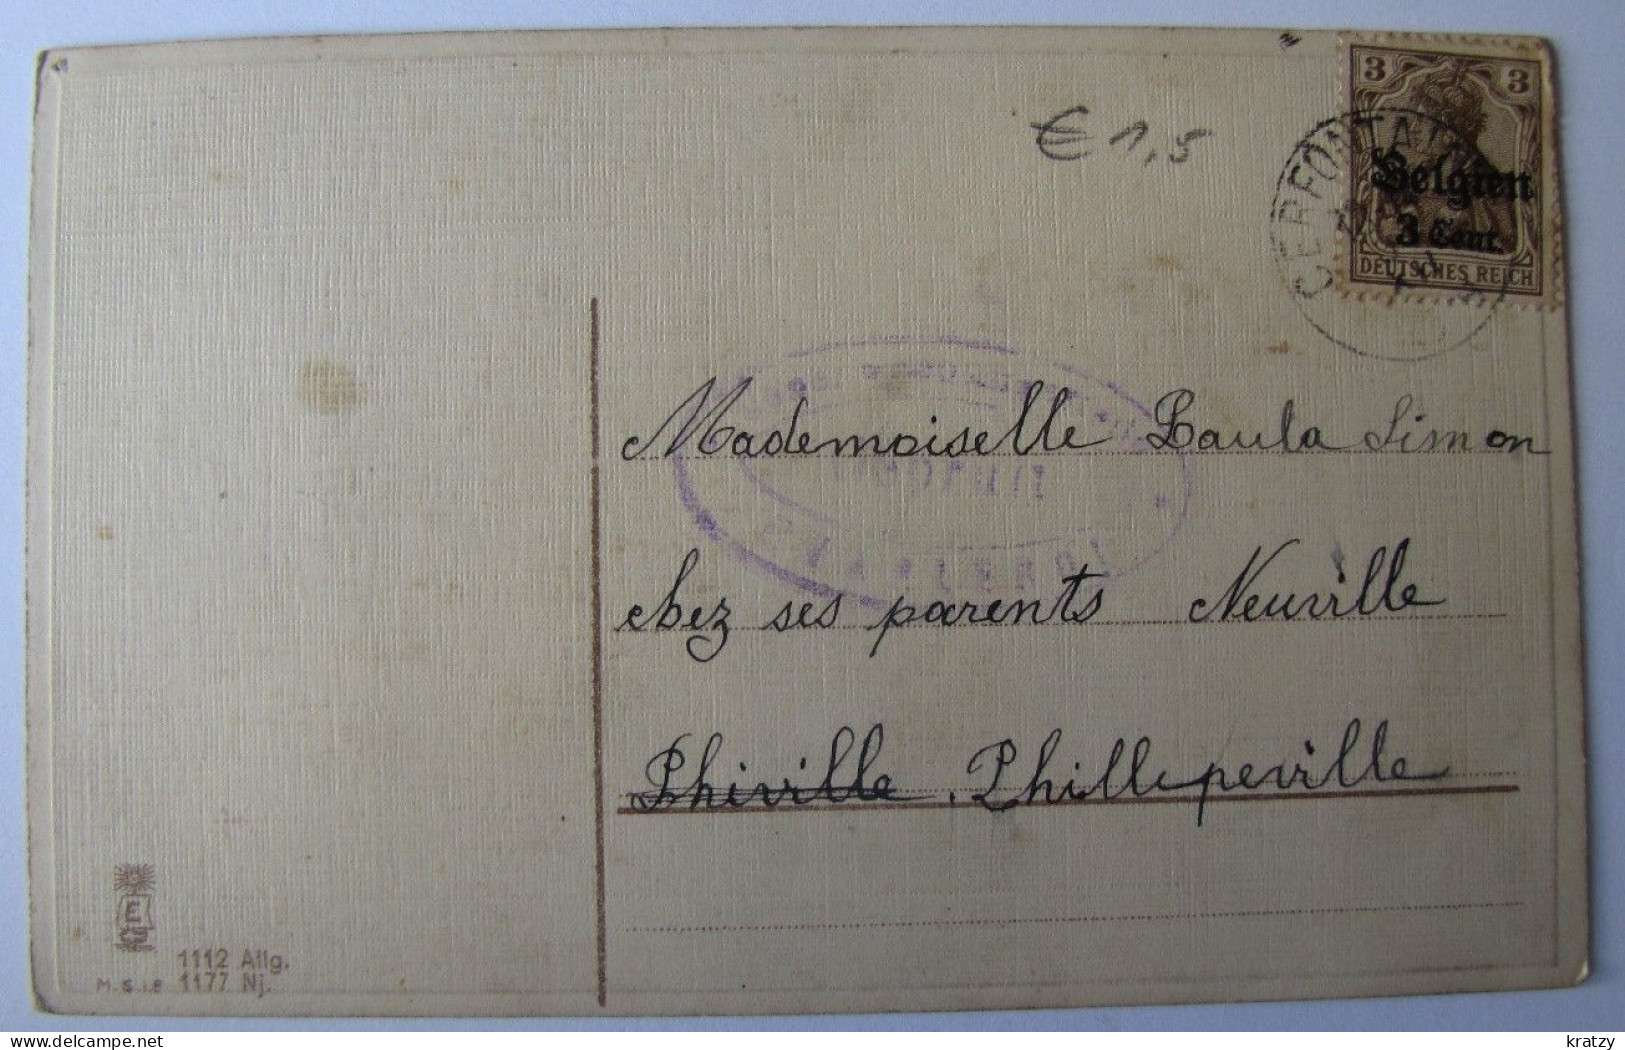 € 1,5
3 3
Belgien
3 Cent.
DEUTSCHES REICH
CERFONTAINE
Mademoiselle Paula Simon
chez ses parents Neuville
Phiville. Phillepeville
E
1112 Allg.
M.S.i.B 1177 Nj.
kratzy